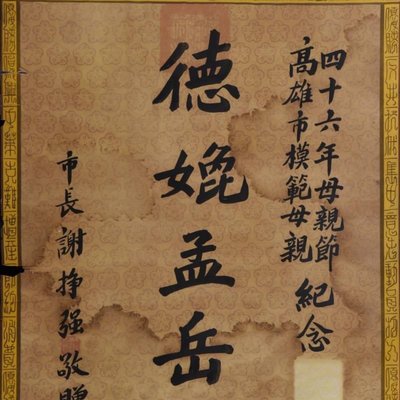 四十六年母親節
高雄市模範母親 紀念
德媲孟岳
市長謝掙强敬贈